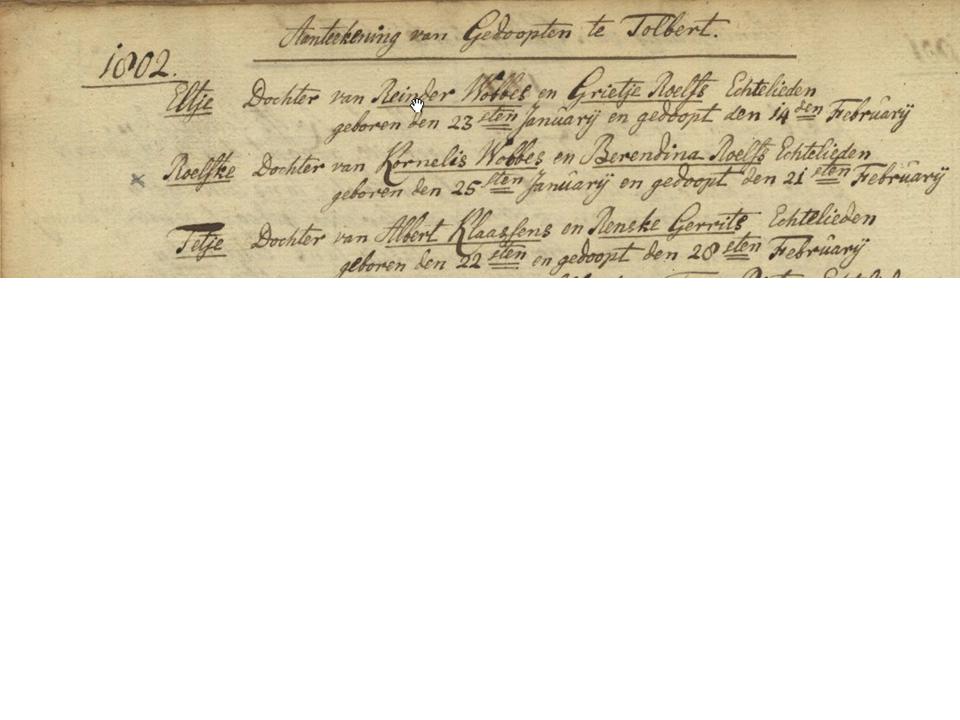 Aanteekening van Gedoopten te Tolbert.
1802.
Eltje Dochter van Reinder Wobbes en Grietje Roelfs Echtelieden
geboren den 23 sten Januarij en gedoopt den 14 den Februarij
x Roelfke Dochter van Kornelis Wobbes en Berendina Roelfs Echtelieden
geboren den 25 sten Januarij en gedoopt den 21 sten Februarij
Tetje Dochter van Albert Klaassens en Renske Gerrits Echtelieden
geboren den 22 sten en gedoopt den 28 sten Februarij